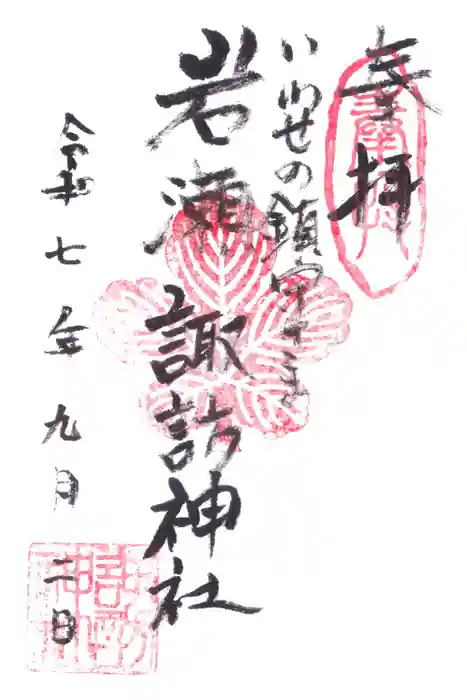 奉拝
いわせの鎮守さま
岩瀬諏訪神社
令和七年九月二日